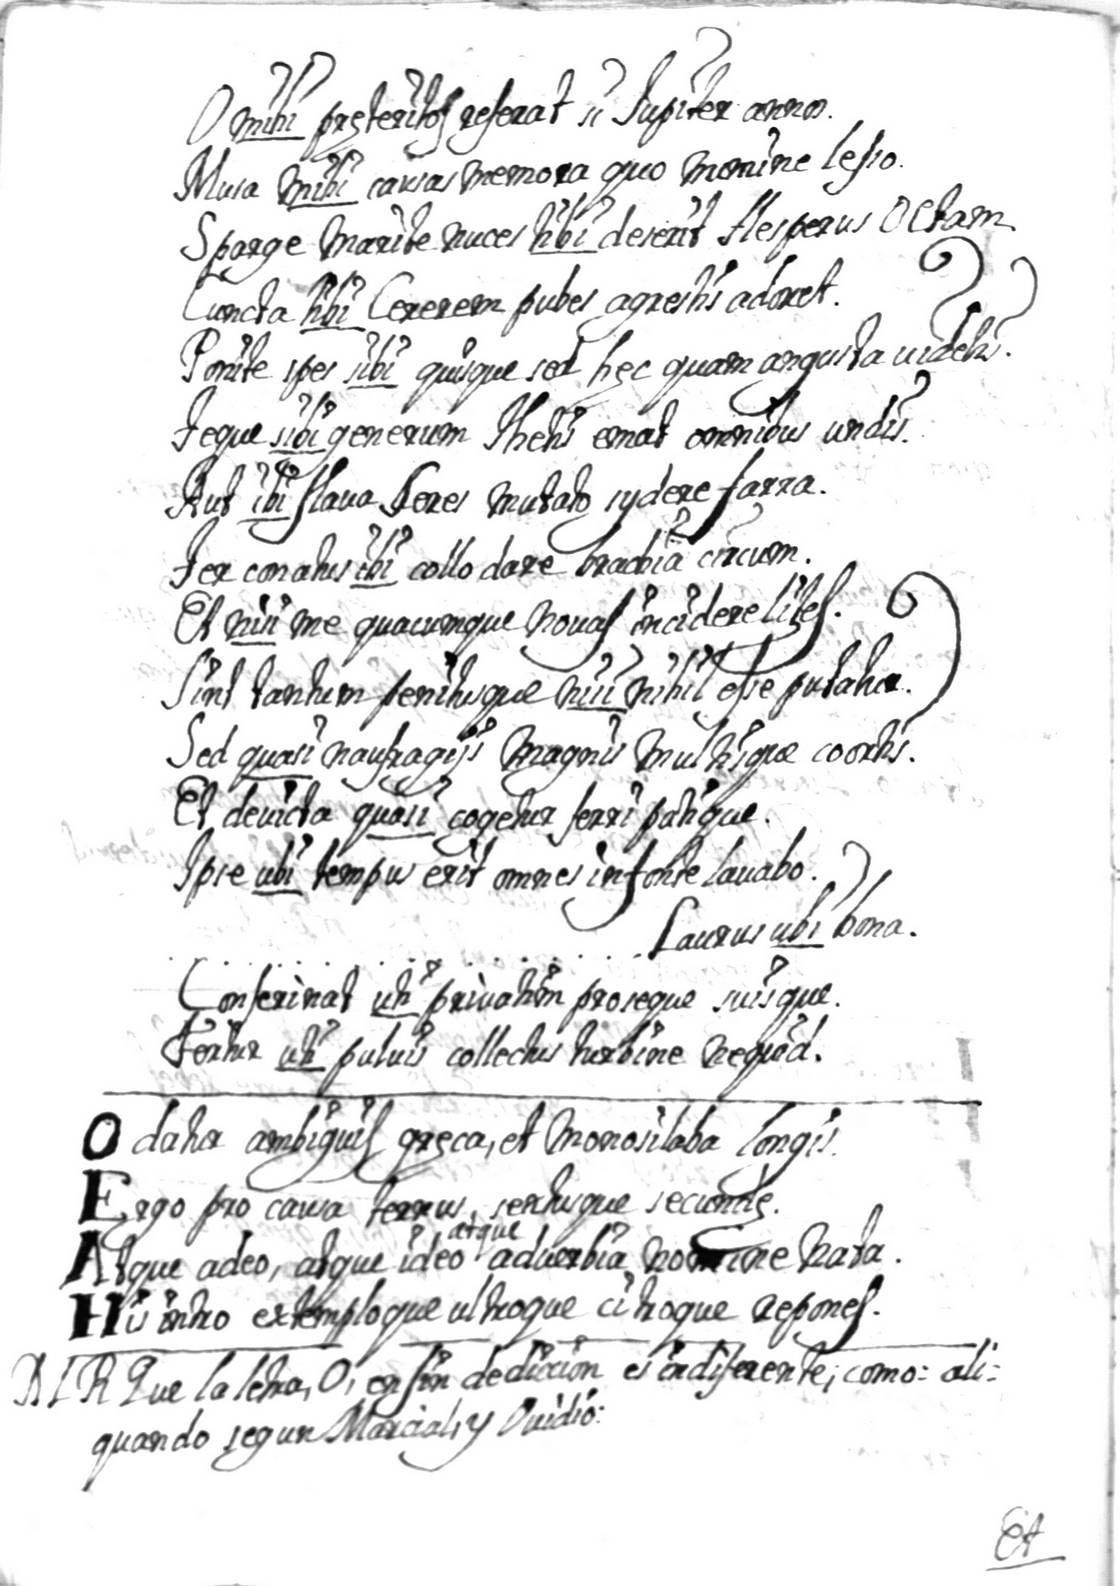 O mihi pręteritos referat si Iupiter annos.
Musa mihi causas memora quo numine leso.
Sparge marite nuces tibi deserit Hesperus Octam
Cuncta tibi Cererem pubes agrestis adoret.
Ponite spes sibi quisque sed hęc quam angusta uidetis.
Teque sibi generum Thetis emat omnibus undis.
Aut ibi flaua Seres mutato sydere farra.
Ter conatus ibi collo dare brachia circum.
Et nisi me quacumque nouas incidere lites.
Sint tantum penitusque nisi nihil esse putatur.
Sed quasi naufragijs magnis multisque coortis.
Et deuicta quasi cogetur ferri patique.
Ipse ubi tempus erit omnes in fonte lauabo.
Laurus ubi bona.
Conferinat uti priuatim proseque suisque.
Fertur uti puluis collectus turbine nequid.
O datur ambiguis gręca, et monosilaba longis.
Ergo pro causa ternus, sextusque secundę.
Atque adeo, atque ideo atque aduerbia nomine nata.
His intro extemploque ultroque citroque repones.
ALR Que la letra, O, en fin de diccion es indiferente; como: ali=
quando segun Marcial, y Ouidio:
Et